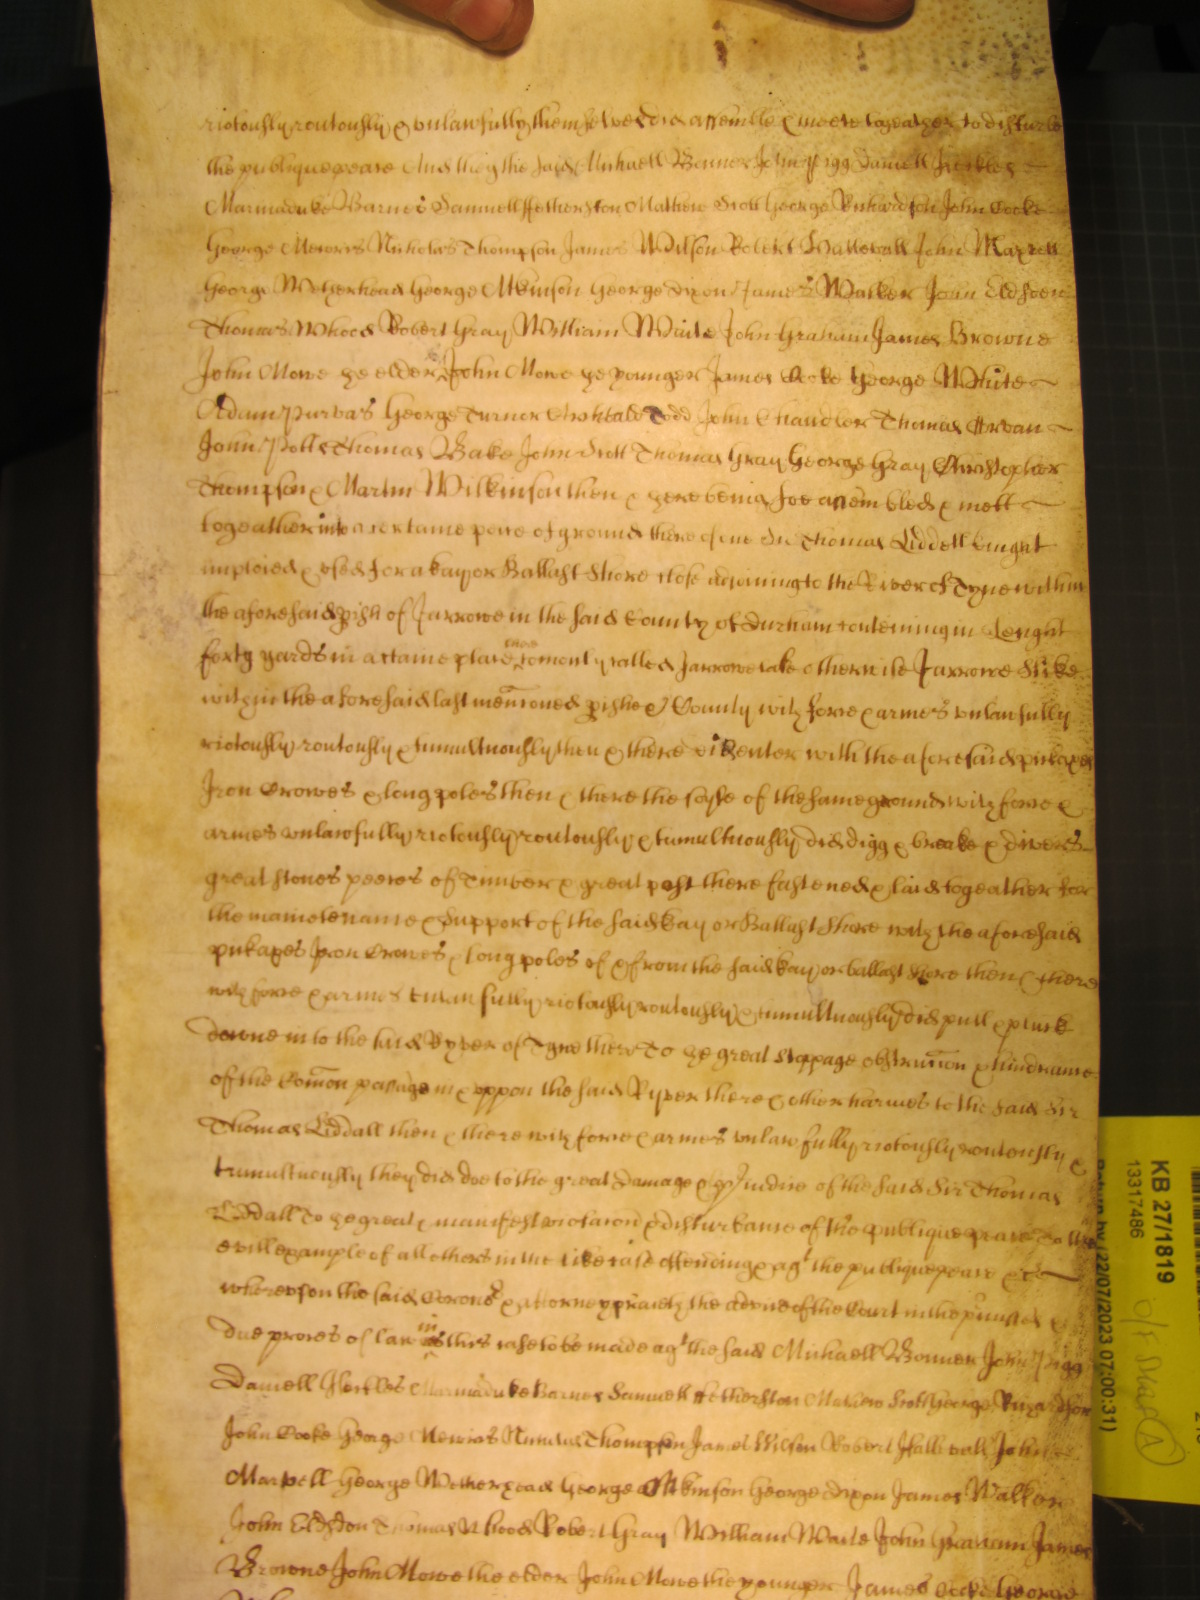 riotously routously & unlawfully themselves did assemble & meete togeather to disturbe
the publique peace And they the said Michaell Bonner John Pigg Daniell Heckles
Marmaduke Barnes Samuell ffetherston Mathew Scott George Richardson John Cooke
George Nicholas Thompson James Wilson Robert Hallowall John Maxwell
George Wetherhead George Atkinson George Dixon James Walker John Eldsden
Thomas Whood Robert Gray William Waile John Graham James Browne
John Mowe ye elder John Mowe ye younger James Cooke George White
Adam Purvas George Turnor Archbald Todd John Chandler Thomas
John Potts Thomas Bake John Scott Thomas Gray George Gray Christopher
Thompson & Martin Wilkinson then & there being soe assembled & mett
togeather into a certaine peece of ground there of one Sir Thomas Liddell knight
imploied & used for a kay or Ballast Shore close adjoining to the River of Tyne within
the aforesaid pish of Jarrowe in the said County of Durham conteining in Lenght
forty yards in a certaine place there comonly called Jarrowe lake otherwise Jarrowe Slike
within the aforesaid last mencioned pishe & County with force & armes unlawfully
riotously routously & tumultuously then & there did enter with the aforesaid pickaxes
Iron Crowes & long poles then & there the soyle of the same ground with force &
armes unlawfully riotously routously & tumultuously did digg & breake & divers
great stones peeces of Timber & great post there fastened & laid togeather for
the maintenance & Support of the said kay or Ballast Shore with the aforesaid
pickaxes Iron Crowes & long poles of & from the said kay or ballast shore then & there
with force & armes unlawfully riotously routously & tumultuously did pull & pluck
downe in to the said Ryver of Tyne there To ye great stoppage obstrucion & hindrance
of the Comon passage in & uppon the said Ryver there & other harmes to the said Sir
Thomas Liddall then & there with force & armes unlawfully riotously routously &
tumultuously they did doe to the great Damage & pjudice of the said Sir Thomas
Liddall To ye great & manifest violacion & disturbance of the publique peace To the
evill example of all others in the like case offending & agt the publique peace &c
whereupon the said Coroner & Attorney prayeth the advice of the Court in the pmisses &
due proces of law in this case to be made agt the said Michaell Bonner John Pigg
Daniell Heckles Marmaduke Barnes Samuell ffetherston Mathew Scott George Richardson
John Cooke George Nicholas Thompson James Wilson Robert Hallowall John
Maxwell George Wetherhead George Atkinson George Dixon James Walker
John Eldsdon Thomas Whood Robert Gray William Waile John Graham James
Browne John Mowe the elder John Mowe the younger James Cooke George
KB 27/1819
13317486
Return by (22/07/2023 07:00:31)